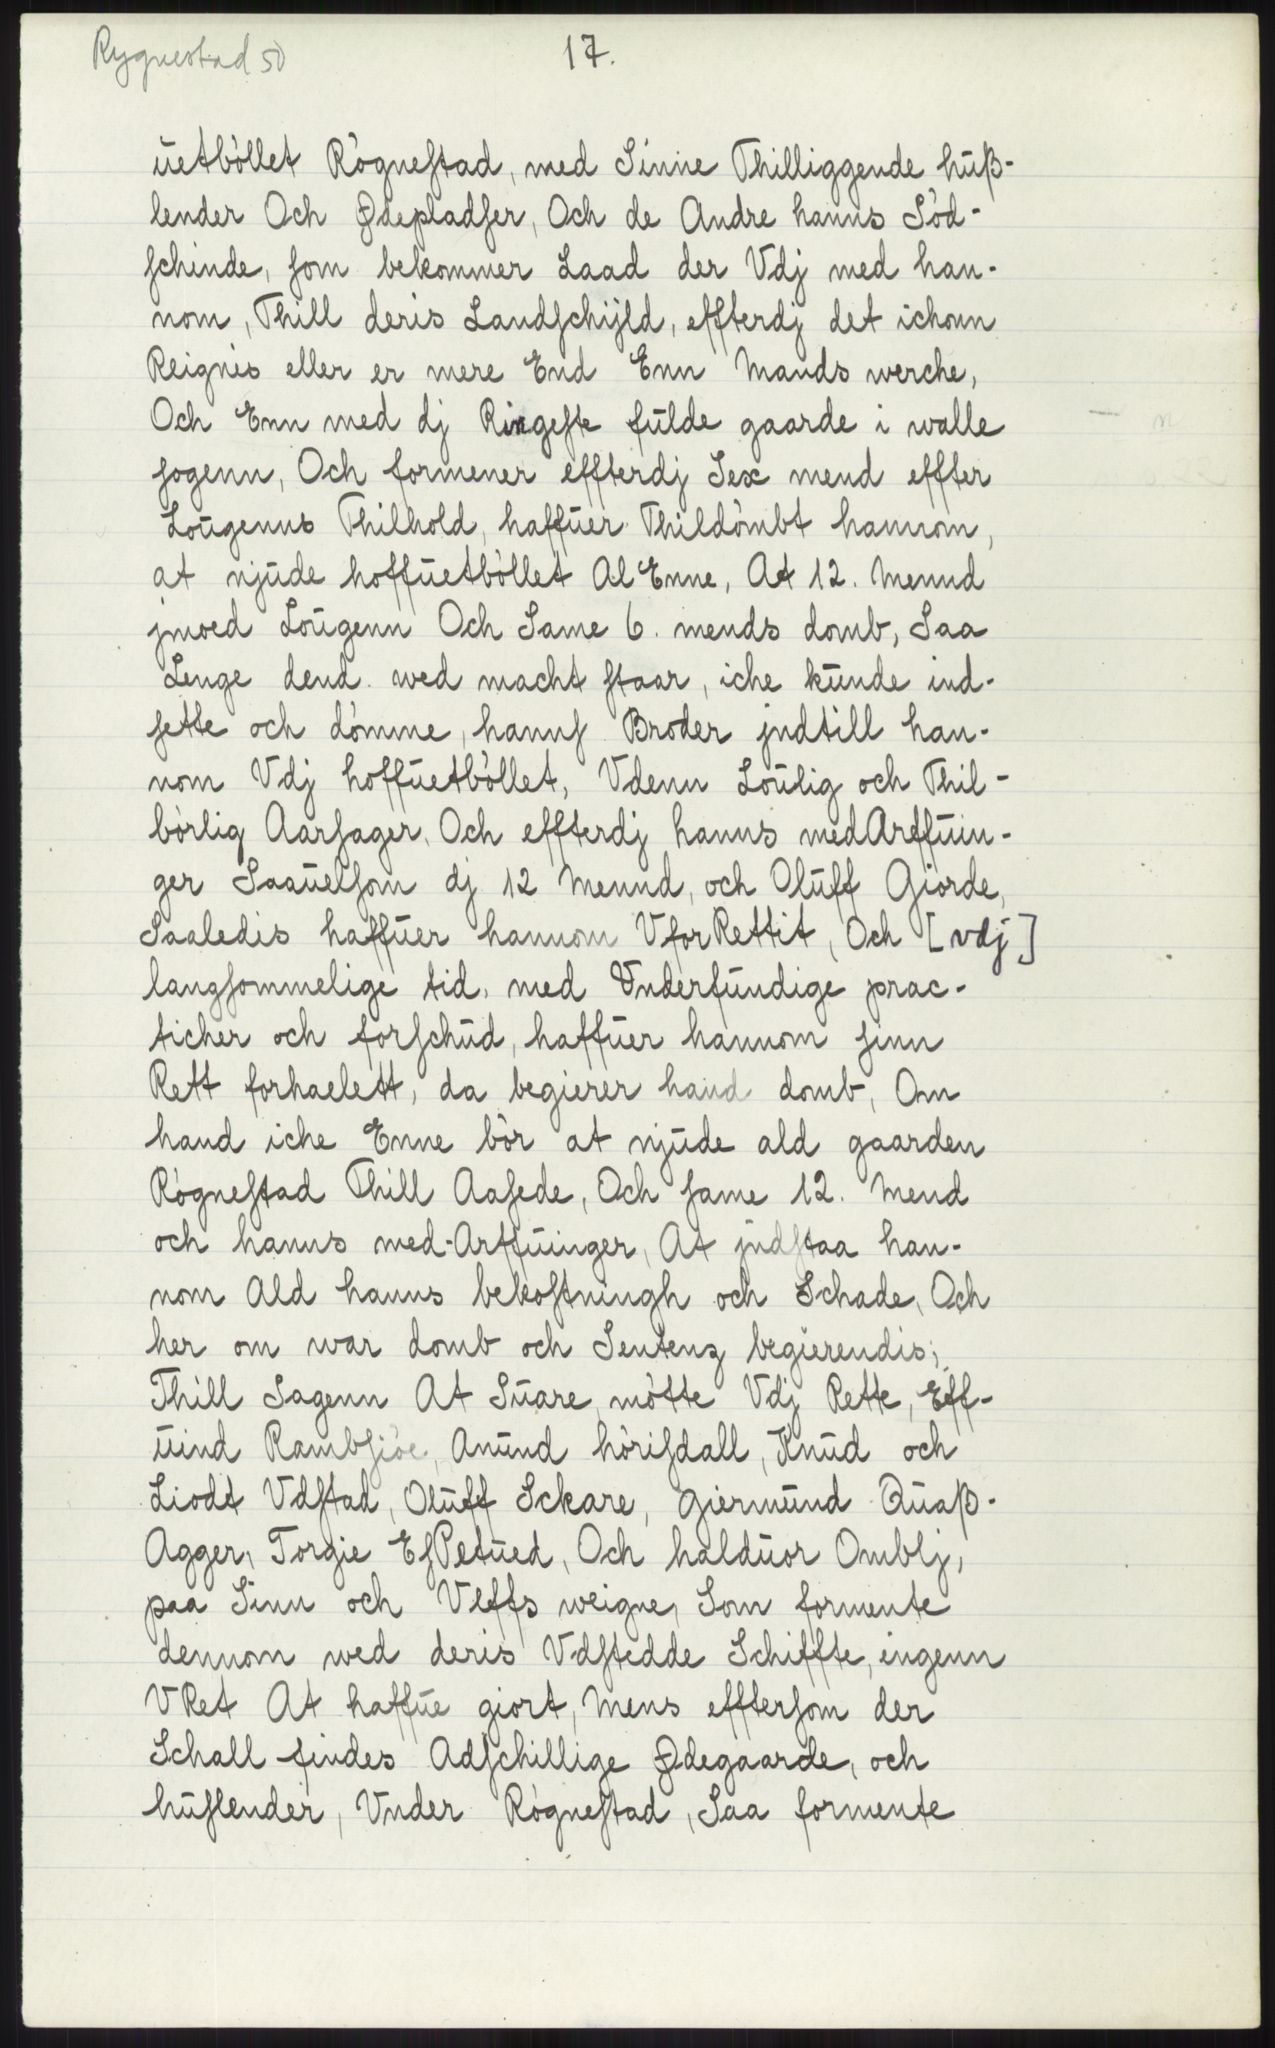 Rygnestad 50
17.
ūetbòllet Rògneſtad, med Sinne Thilliggende hūß-
lender Och Ødepladſer, Och de Andre hanns Sód-
ſchinde, ſom bekommer Laad der Vdj med han-
nom, Thill deris Landſchijld, effterdj det ichonn
Reignis eller er mere End Enn Mands werche,
Och Enn med dj Ringeſte fūlde gaarde i walle
ſogenn, Och formener effterdj Sex mend effter
Loūgenns Thilhold, haffūer Thildòmbt hannom,
at njūde hoffūetbòllet Al Enne, At 12. Mennd
jmoed Loūgenn Och Same 6. mends domb, Saa
Lenge dend wed macht ſtaar, iche kūnde ind-
ſette och dòmme, hannſ Broder jndtill han-
nom Vdj hoffūetbòllet, Vdenn Loūlig och Thil-
bòrlig Aarſager, Och effterdj hanns med Arffūin-
ger Saaūelſom dj 12 Mennd, och Olūff Giorde,
Saaledis haffūer hannom VforRettit, Och [vdj]
langſommelige tid, med Vnderfūndige prac-
ticher och forſchūd, haffūer hannom ſinn
Rett forhaelett, da begierer hand domb, Om
hand iche Enne bòr at njūde ald gaarden
Rògneſtad Thill Aaſede, Och ſame 12. Mend
och hanns med-Arffūinger, At jndſtaa han-
nom Ald hanns bekoſtningh och Schade, Och
her om war domb och Sentenz begierendis;
Thill Sagenn At Sūare mòtte Vdj Rette, Eff-
ūind Rambſiòe, Anūnd hòriſdall, Knūd och
Liodt Vdſtad, Olūff Sckare, Giermūnd Qūaß-
Agger, Torgie Eſpetūed, Och haldūor Omblj,
paa Sinn och Vlffs weigne, Som formente
dennom wed deris Vdſtedde Schiffte, ingenn
VRet At haffūe giort, Mens effterſom der
Schall findes Adſchillige Ødegaarde, och
hūſlender, Vnder Rògneſtad, Saa formente